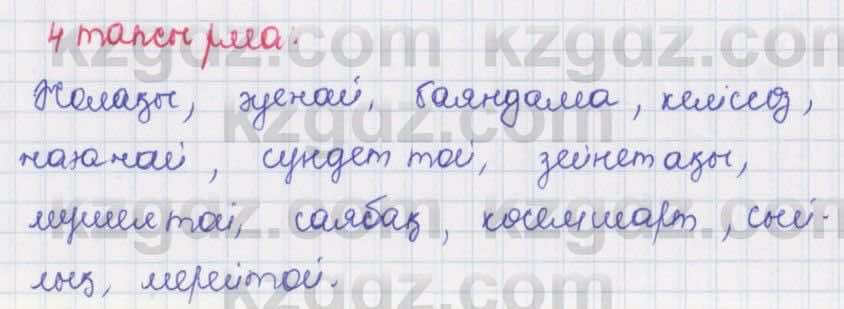 4 тапсырма.
Жолақы, жұпнай, баяндама, келіссөз,
наханай, сүндет той, зейнетақы,
мүшелтой, саябақ, косемшарт, сый-
лық, мерейтой.